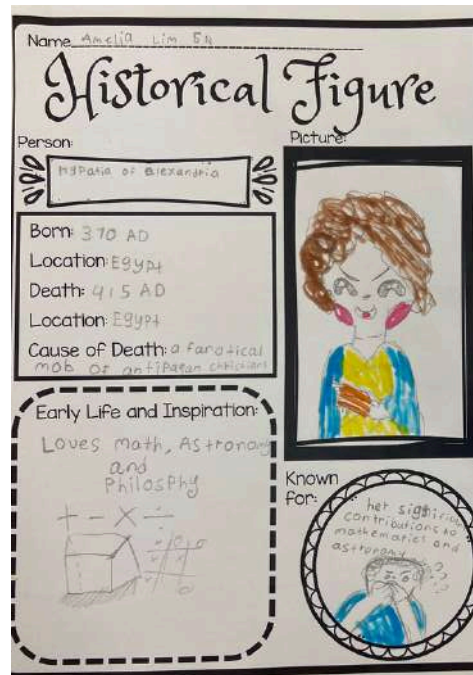 Name Amelia Lim 5N
Historical Figure
Person:
Hypatia of Alexandria
Picture:
Born: 370 AD
Location: Egypt
Death: 415 AD
Location: Egypt
Cause of Death: a fanatical
mob of antipagan christians
Early Life and Inspiration:
Loves math, Astronomy
and
Philosphy
+ - × ÷
Known
for:
her
contributions to
mathematics and
astronomy
? ? ?